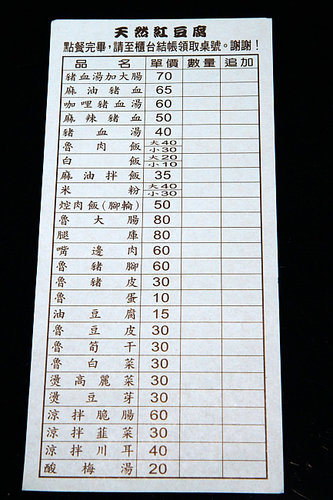 天然紅豆腐
點餐完畢，請至櫃台結帳領取桌號。謝謝！
品名 單價 數量 追加
豬血湯加大腸 70
麻油豬血 65
咖哩豬血湯 60
麻辣豬血 50
豬血湯 40
魯肉飯 大40 小30
白飯 大20 小10
麻油拌飯 35
米粉 大40 小30
焢肉飯(腳輪) 50
魯大腸 80
腿庫 80
嘴邊肉 60
魯豬腳 60
魯豬皮 30
魯蛋 10
油豆腐 15
魯豆皮 30
魯筍干 30
魯白菜 30
燙高麗菜 30
燙豆芽 30
涼拌脆腸 60
涼拌韮菜 30
涼拌川耳 40
酸梅湯 20